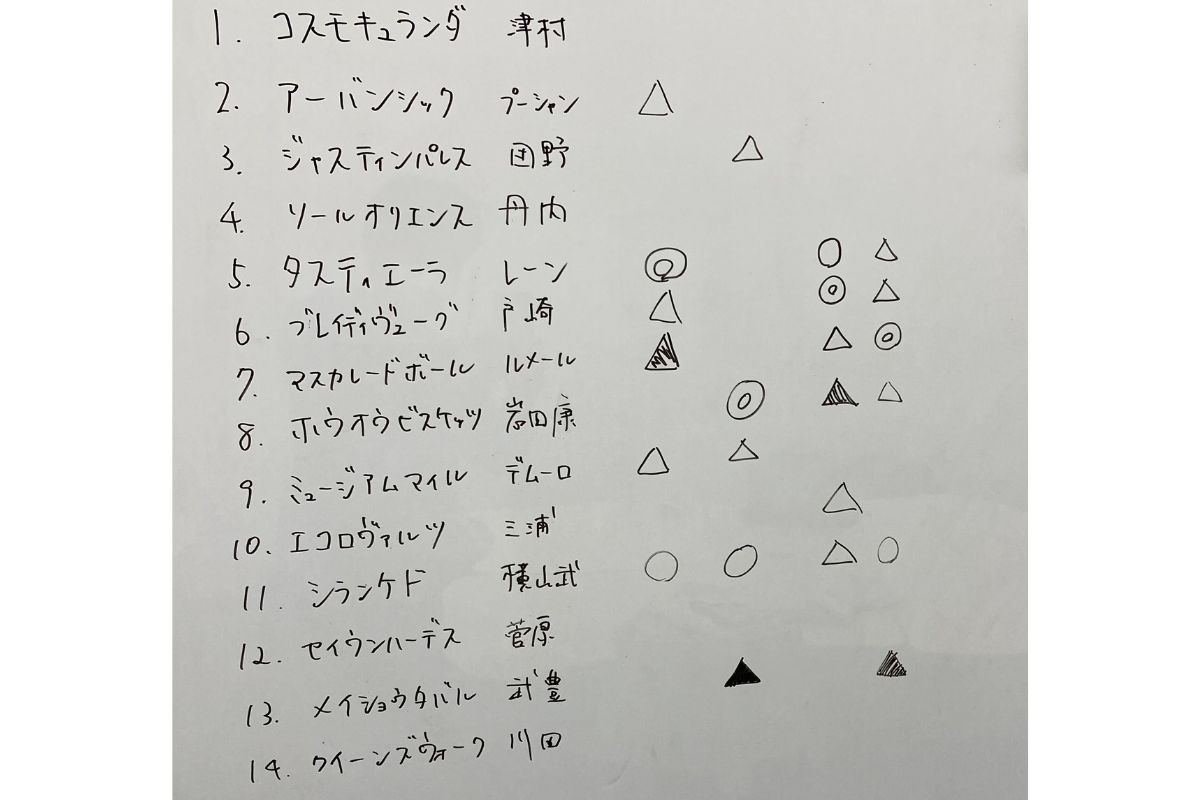 1. コスモキュランダ 津村
2. アーバンシック プーシャン △
3. ジャスティンパレス 団野 △
4. ソールオリエンス 丹内
5. タスティエーラ レーン ◎ ○ △
6. ブレイディヴェーグ 戸崎 △ ◎ △
7. マスカレードボール ルメール ▲ △ ◎
8. ホウオウビスケッツ 岩田康 ◎ ▲ △
9. ミュージアムマイル デムーロ △ △
10. エコロヴァルツ 三浦 △
11. シランケド 横山武 ○ ○ △ ○
12. セイウンハーデス 菅原
13. メイショウタバル 武豊 ▲ ▲
14. クイーンズウォーク 川田